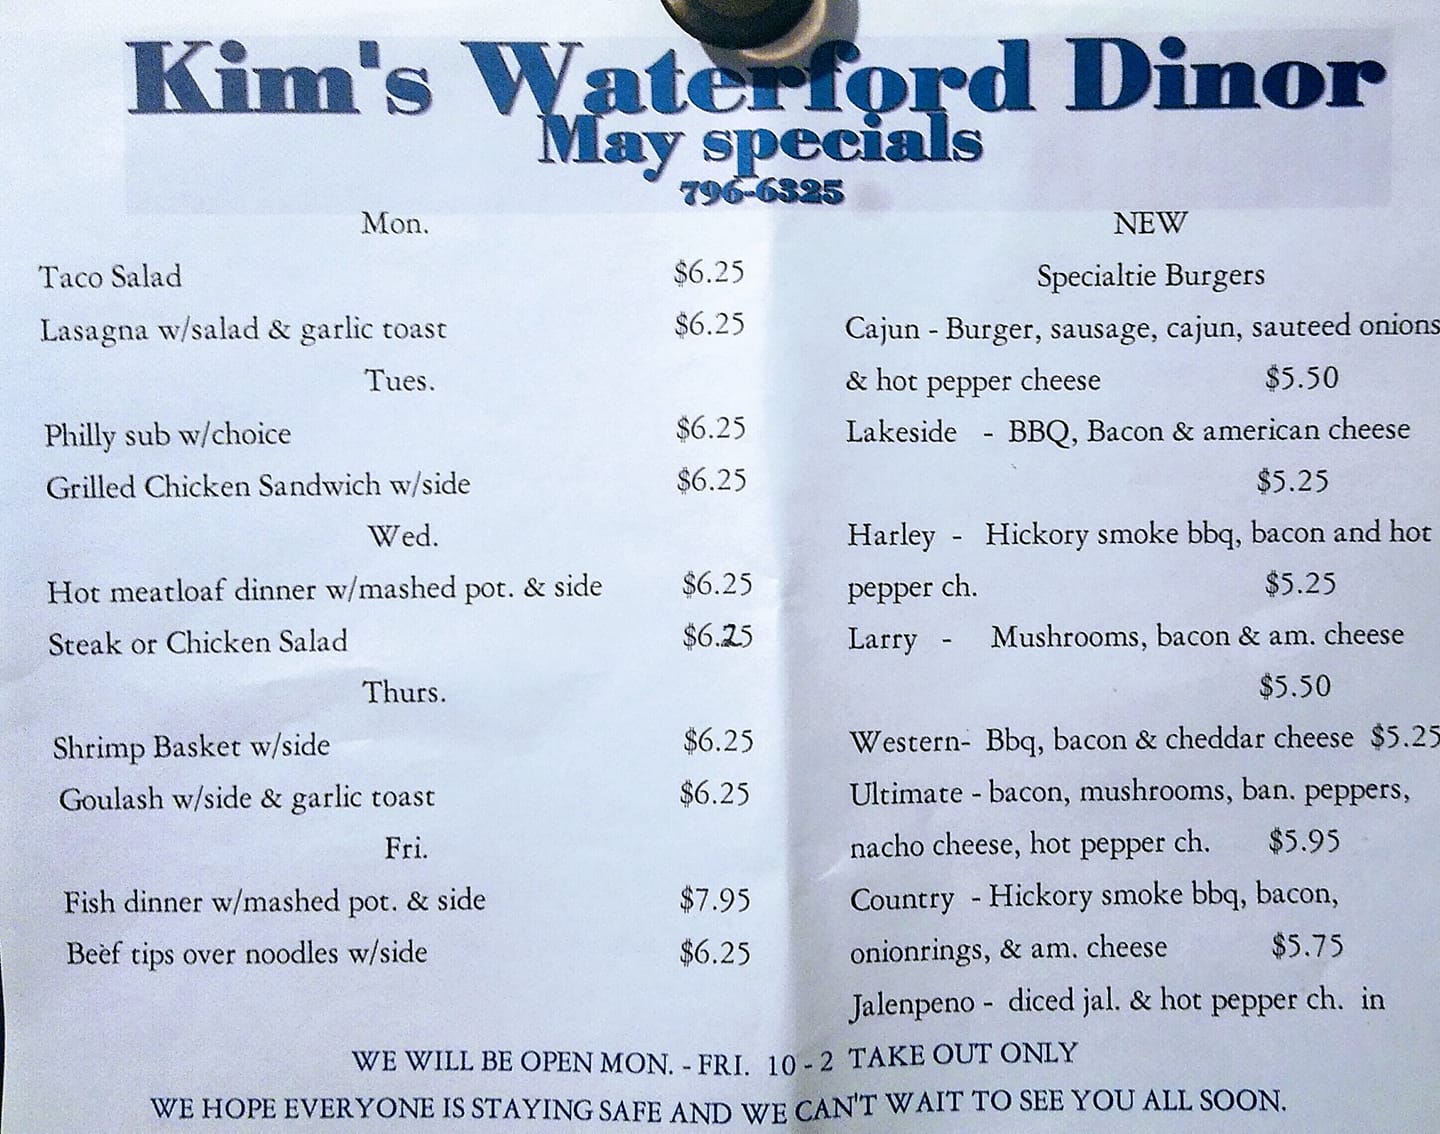 Kim's Waterford Dinor
May specials
796-6325
Mon.
Taco Salad $6.25
Lasagna w/salad & garlic toast $6.25
Tues.
Philly sub w/choice $6.25
Grilled Chicken Sandwich w/side $6.25
Wed.
Hot meatloaf dinner w/mashed pot. & side $6.25
Steak or Chicken Salad $6.25
Thurs.
Shrimp Basket w/side $6.25
Goulash w/side & garlic toast $6.25
Fri.
Fish dinner w/mashed pot. & side $7.95
Beef tips over noodles w/side $6.25
NEW
Specialtie Burgers
Cajun - Burger, sausage, cajun, sauteed onions
& hot pepper cheese $5.50
Lakeside - BBQ, Bacon & american cheese
$5.25
Harley - Hickory smoke bbq, bacon and hot
pepper ch. $5.25
Larry - Mushrooms, bacon & am. cheese
$5.50
Western- Bbq, bacon & cheddar cheese $5.25
Ultimate - bacon, mushrooms, ban. peppers,
nacho cheese, hot pepper ch. $5.95
Country - Hickory smoke bbq, bacon,
onionrings, & am. cheese $5.75
Jalenpeno - diced jal. & hot pepper ch. in
WE WILL BE OPEN MON. - FRI. 10 - 2 TAKE OUT ONLY
WE HOPE EVERYONE IS STAYING SAFE AND WE CAN'T WAIT TO SEE YOU ALL SOON.